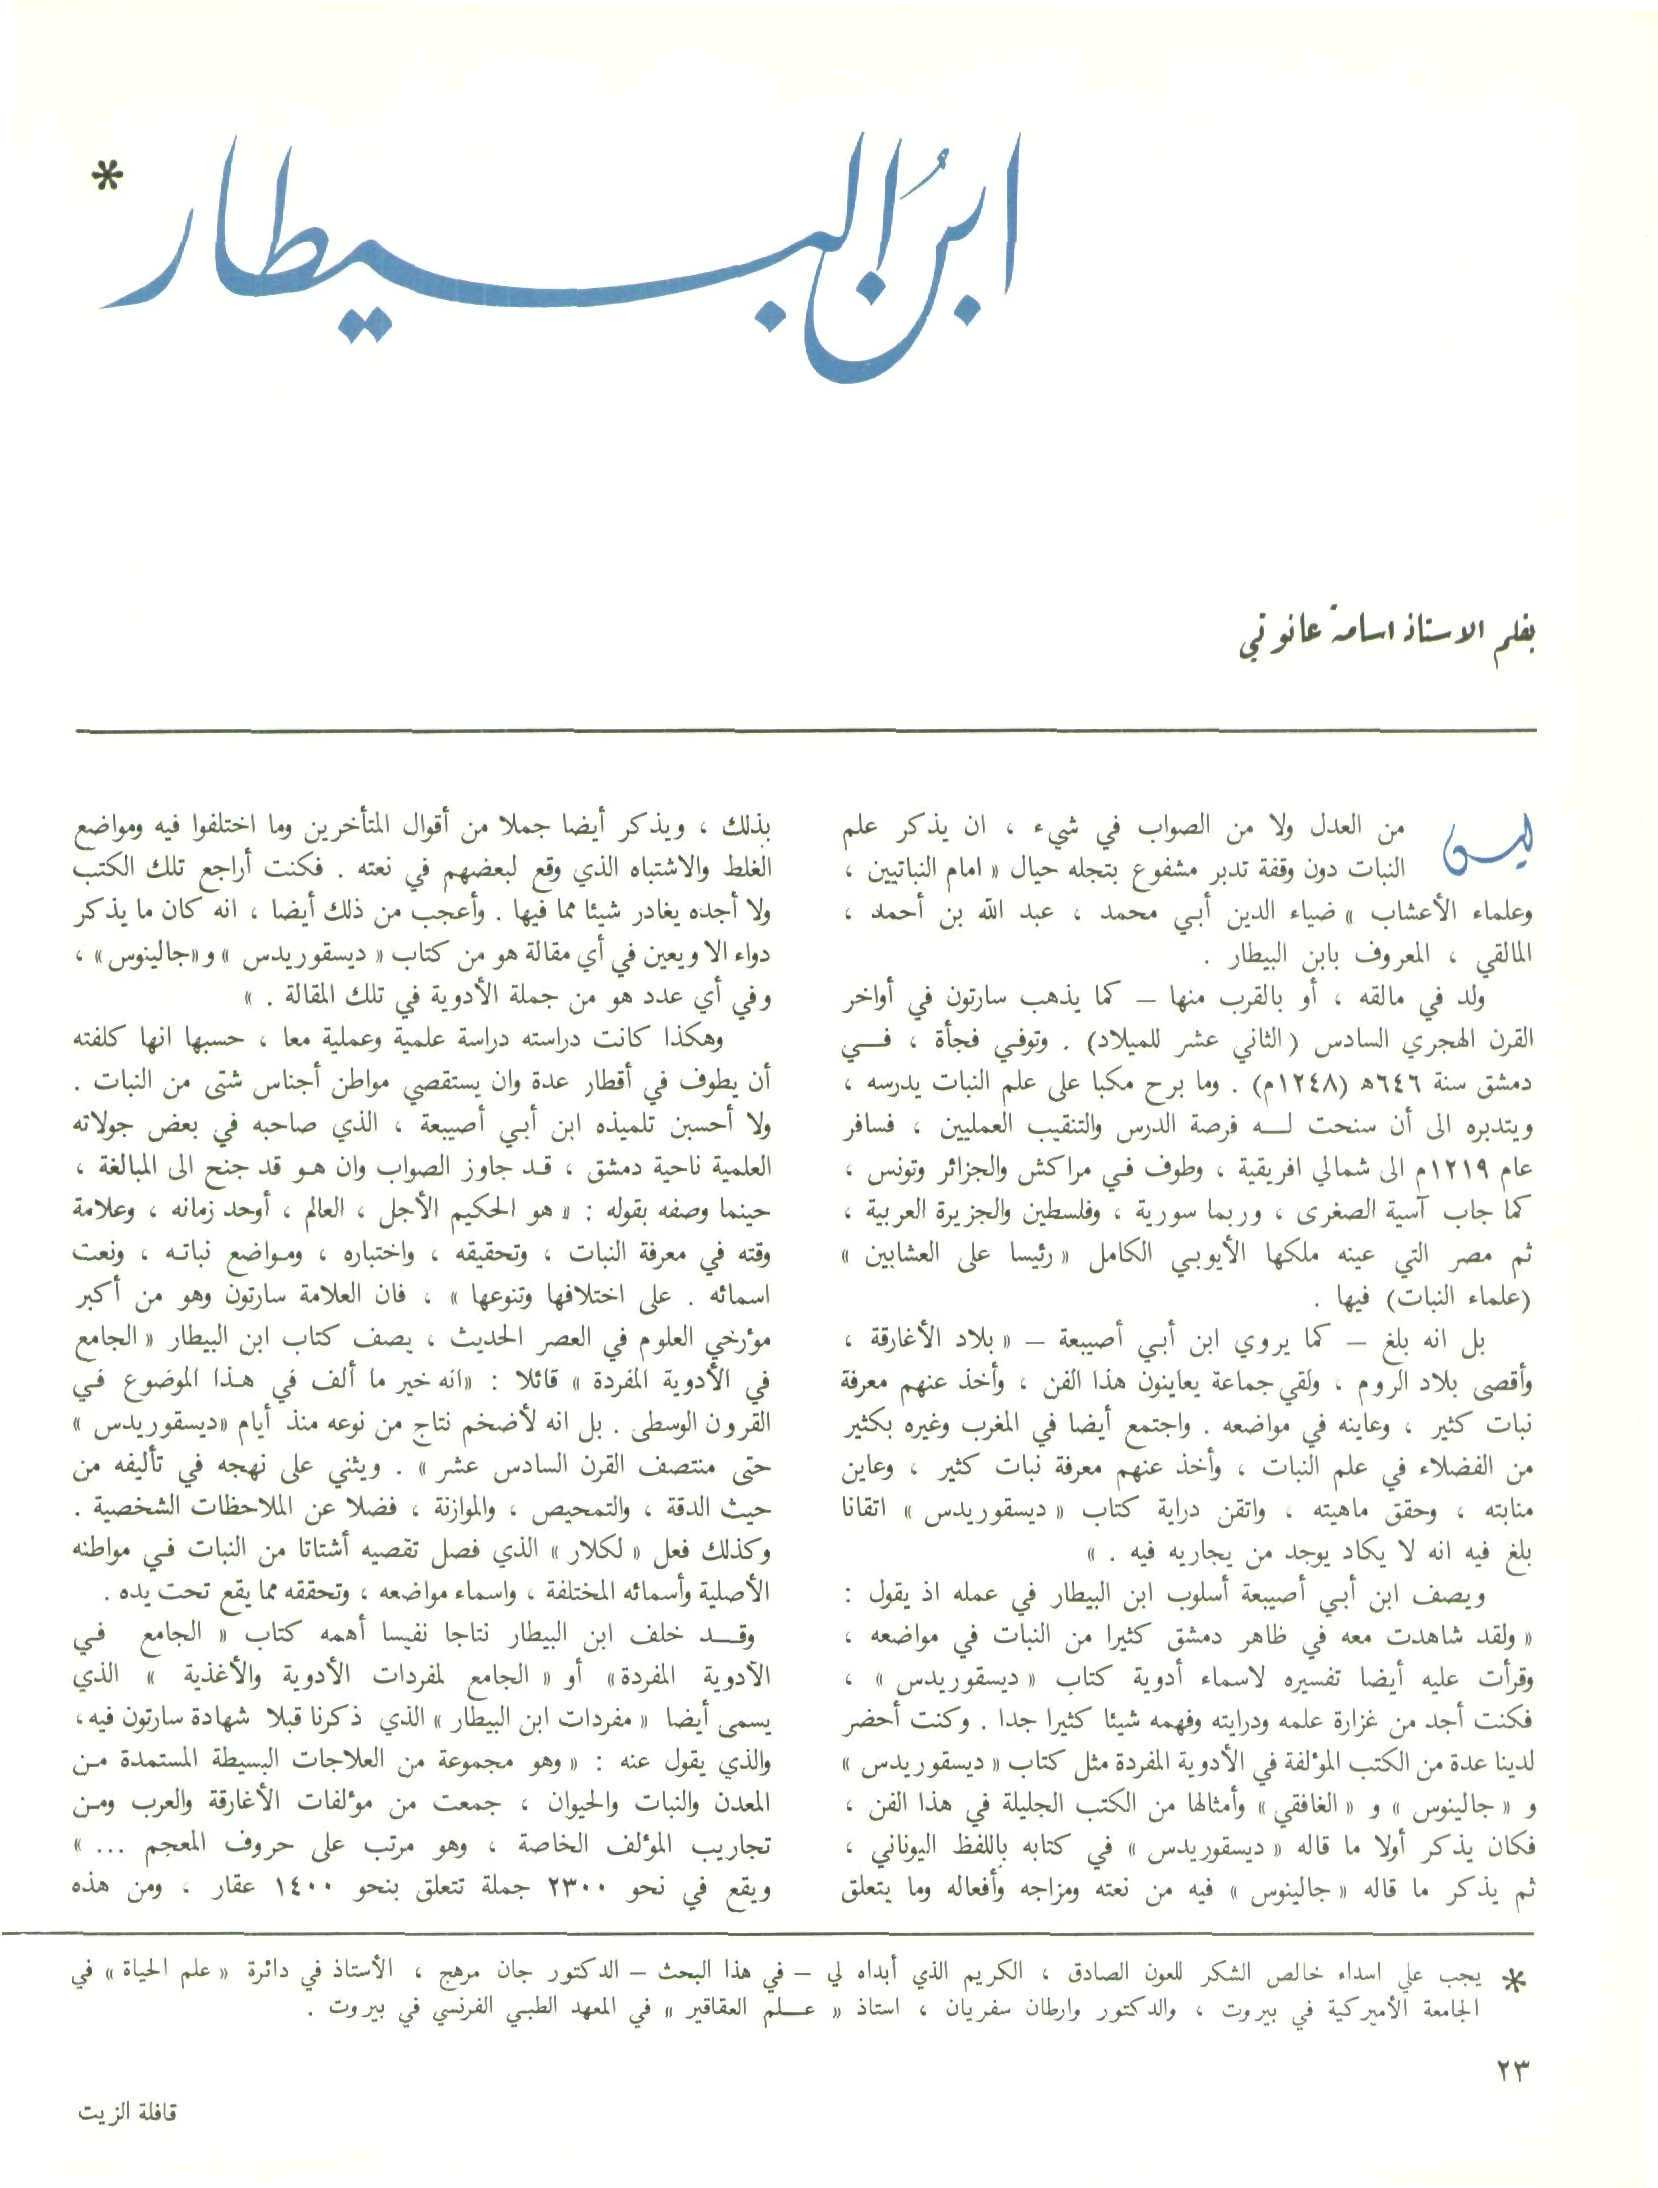 ابن البيطار *
بقلم الاستاذ اسامة عانوتي
ليس من العدل ولا من الصواب في شيء ، ان يذكر علم
النبات دون وقفة تدبر مشفوع بتجله حيال « امام النباتيين ،
وعلماء الأعشاب » ضياء الدين أبي محمد ، عبد الله بن أحمد ،
المالقي ، المعروف بابن البيطار .
ولد في مالقه ، أو بالقرب منها – كما يذهب سارتون في أواخر
القرن الهجري السادس (الثاني عشر للميلاد) . وتوفي فجأة ، في
دمشق سنة ٦٤٦ه (١٢٤٨م) . وما برح مكبا على علم النبات يدرسه ،
ويتدبره الى أن سنحت له فرصة الدرس والتنقيب العمليين ، فسافر
عام ١٢١٩م الى شمالي افريقية ، وطوف في مراكش والجزائر وتونس ،
كما جاب آسية الصغرى ، وربما سورية ، وفلسطين والجزيرة العربية ،
ثم مصر التي عينه ملكها الأيوبي الكامل « رئيسا على العشابين »
(علماء النبات) فيها .
بل انه بلغ – كما يروي ابن أبي أصيبعة – « بلاد الأغارقة ،
وأقصى بلاد الروم ، ولقي جماعة يعاينون هذا الفن ، وأخذ عنهم معرفة
نبات كثير ، وعاينه في مواضعه . واجتمع أيضا في المغرب وغيره بكثير
من الفضلاء في علم النبات ، وأخذ عنهم معرفة نبات كثير ، وعاين
منابته ، وحقق ماهيته ، واتقن دراية كتاب « ديسقوريدس » اتقانا
بلغ فيه انه لا يكاد يوجد من يجاريه فيه . »
ويصف ابن أبي أصيبعة أسلوب ابن البيطار في عمله اذ يقول :
« ولقد شاهدت معه في ظاهر دمشق كثيرا من النبات في مواضعه ،
وقرأت عليه أيضا تفسيره لاسماء أدوية كتاب « ديسقوريدس » ،
فكنت أجد من غزارة علمه ودرايته وفهمه شيئا كثيرا جدا . وكنت أحضر
لدينا عدة من الكتب المؤلفة في الأدوية المفردة مثل كتاب « ديسقوريدس »
و « جالينوس » و « الغافقي » وأمثالها من الكتب الجليلة في هذا الفن ،
فكان يذكر أولا ما قاله « ديسقوريدس » في كتابه باللفظ اليوناني ،
ثم يذكر ما قاله « جالينوس » فيه من نعته ومزاجه وأفعاله وما يتعلق
بذلك ، ويذكر أيضا جملا من أقوال المتأخرين وما اختلفوا فيه ومواضع
الغلط والاشتباه الذي وقع لبعضهم في نعته . فكنت أراجع تلك الكتب
ولا أجده يغادر شيئا مما فيها . وأعجب من ذلك أيضا ، انه كان ما يذكر
دواء الا ويعين في أي مقالة هو من كتاب « ديسقوريدس » و«جالينوس» ،
وفي أي عدد هو من جملة الأدوية في تلك المقالة . »
وهكذا كانت دراسته دراسة علمية وعملية معا ، حسبها انها كلفته
أن يطوف في أقطار عدة وان يستقصي مواطن أجناس شتى من النبات .
ولا أحسبن تلميذه ابن أبي أصيبعة ، الذي صاحبه في بعض جولاته
العلمية ناحية دمشق ، قد جاوز الصواب وان هو قد جنح الى المبالغة ،
حينما وصفه بقوله : « هو الحكيم الأجل ، العالم ، أوحد زمانه ، وعلامة
وقته في معرفة النبات ، وتحقيقه ، واختباره ، ومواضع نباته ، ونعت
اسمائه . على اختلافها وتنوعها » ، فان العلامة سارتون وهو من أكبر
مؤرخي العلوم في العصر الحديث ، يصف كتاب ابن البيطار « الجامع
في الأدوية المفردة » قائلا : «انه خير ما ألف في هذا الموضوع في
القرون الوسطى . بل انه لأضخم نتاج من نوعه منذ أيام «ديسقوريدس »
حتى منتصف القرن السادس عشر » . ويثني على نهجه في تأليفه من
حيث الدقة ، والتمحيص ، والموازنة ، فضلا عن الملاحظات الشخصية .
وكذلك فعل « لكلار » الذي فصل تقصيه أشتاتا من النبات في مواطنه
الأصلية وأسمائه المختلفة ، واسماء مواضعه ، وتحققه مما يقع تحت يده .
وقد خلف ابن البيطار نتاجا نفيسا أهمه كتاب « الجامع في
الآدوية المفردة» أو « الجامع لمفردات الأدوية والأغذية » الذي
يسمى أيضا « مفردات ابن البيطار » الذي ذكرنا قبلا شهادة سارتون فيه،
والذي يقول عنه : « وهو مجموعة من العلاجات البسيطة المستمدة من
المعدن والنبات والحيوان ، جمعت من مؤلفات الأغارقة والعرب ومن
تجاريب المؤلف الخاصة ، وهو مرتب على حروف المعجم ... »
ويقع في نحو ٢٣٠٠ جملة تتعلق بنحو ١٤٠٠ عقار ، ومن هذه
* يجب علي اسداء خالص الشكر للعون الصادق ، الكريم الذي أبداه لي – في هذا البحث – الدكتور جان مرهج ، الأستاذ في دائرة « علم الحياة » في
الجامعة الأميركية في بيروت ، والدكتور وارطان سفريان ، استاذ « علم العقاقير » في المعهد الطبي الفرنسي في بيروت .
٢٣
قافلة الزيت